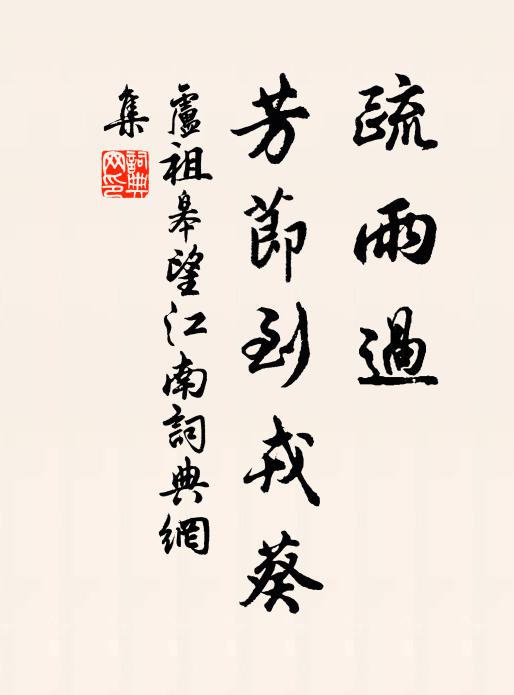 疏雨過
芳節到戎葵
盧祖皋望江南詞典網
集
詞典
网印